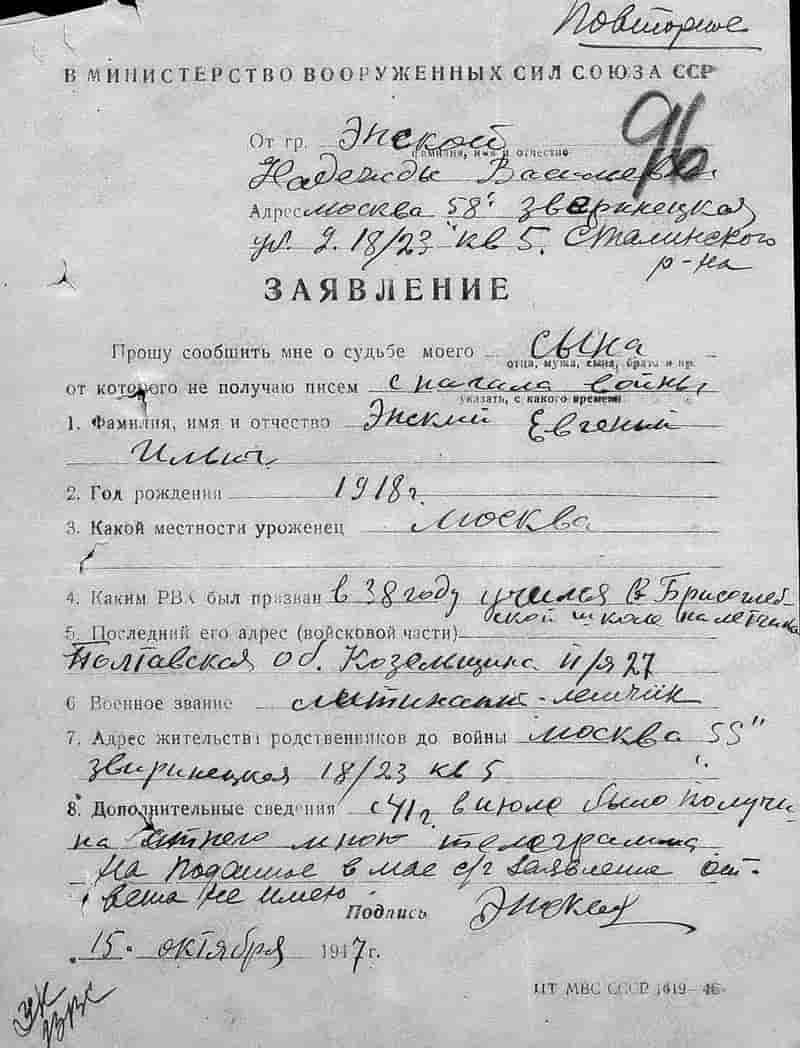 Повторное
В МИНИСТЕРСТВО ВООРУЖЕННЫХ СИЛ СОЮЗА ССР
96
От гр. Энской
фамилия, имя и отчество
Надежды Васильевны
Адрес Москва 58" Зверинецкая
ул. д. 18/23 кв 5. Сталинского
р-на
ЗАЯВЛЕНИЕ
Прошу сообщить мне о судьбе моего сына
отца, мужа, сына, брата и пр.
от которого не получаю писем с начала войны
указать, с какого времени
1. Фамилия, имя и отчество Энский Евгений
Ильич
2. Год рождения 1918 г.
3. Какой местности уроженец Москва
4. Каким РВК был призван в 38 году учился в Брисоглеб-
ской школе на летчика
5. Последний его адрес (войсковой части)
Полтавская об. Козельщина п/я 27
6 Военное звание литинант-летчик
7. Адрес жительства родственников до войны Москва 58"
Звиринецкая 18/23 кв 5
8. Дополнительные сведения с 41 г. в июле было получи
на от него мною телеграмма
На поданное в мае с/г заявление от-
вета не имею.
Подпись Энская
15. октября 1947 г.
ЦТ МВС СССР 1619—46